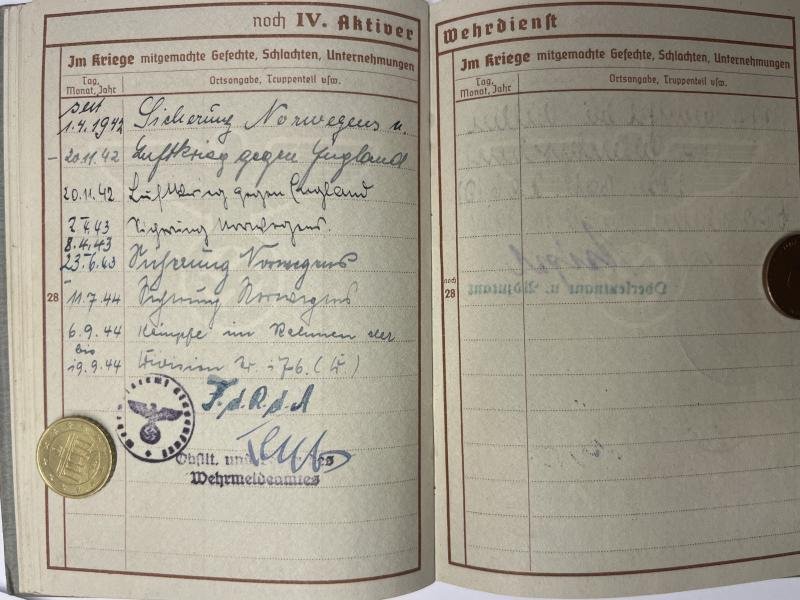 noch IV. Aktiver Wehrdienst
Im Kriege mitgemachte Gefechte, Schlachten, Unternehmungen
Tag, Monat, Jahr
Ortsangabe, Truppenteil usw.
seit
1.4.1942 Sicherung Norwegens u.
- 20.11.42 Luftkrieg gegen England
20.11.42 Luftkrieg gegen England
43 Sicherung Norwegens.
8.4.43
23.6.43 Sicherung Norwegens
11.7.44 Sicherung Norwegens
6.9.44 Kämpfe im Rahmen der
bis
19.9.44 Division Nr. 176. (L)
28
F.d.R.d.A
Obstlt. und
Wehrmeldeamtes
Im Kriege mitgemachte Gefechte, Schlachten, Unternehmungen
Tag, Monat, Jahr
Ortsangabe, Truppenteil usw.
noch
28
Oberleutnant u. Adjutant